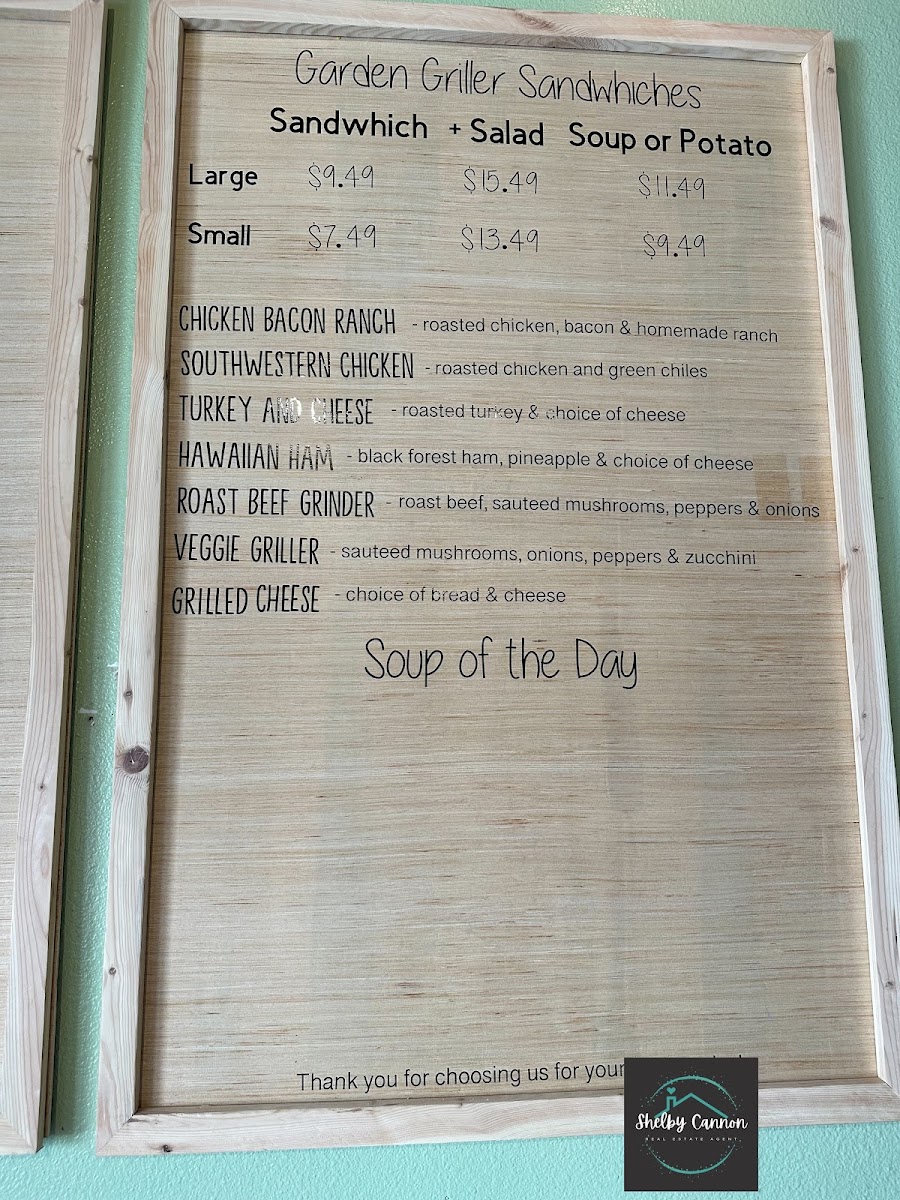 Garden Griller Sandwhiches
Sandwhich + Salad Soup or Potato
Large $9.49 $15.49 $11.49
Small $7.49 $13.49 $9.49
CHICKEN BACON RANCH - roasted chicken, bacon & homemade ranch
SOUTHWESTERN CHICKEN - roasted chicken and green chiles
TURKEY AND CHEESE - roasted turkey & choice of cheese
HAWAIIAN HAM - black forest ham, pineapple & choice of cheese
ROAST BEEF GRINDER - roast beef, sauteed mushrooms, peppers & onions
VEGGIE GRILLER - sauteed mushrooms, onions, peppers & zucchini
GRILLED CHEESE - choice of bread & cheese
Soup of the Day
Thank you for choosing us for your
Shelby Cannon
REAL ESTATE AGENT